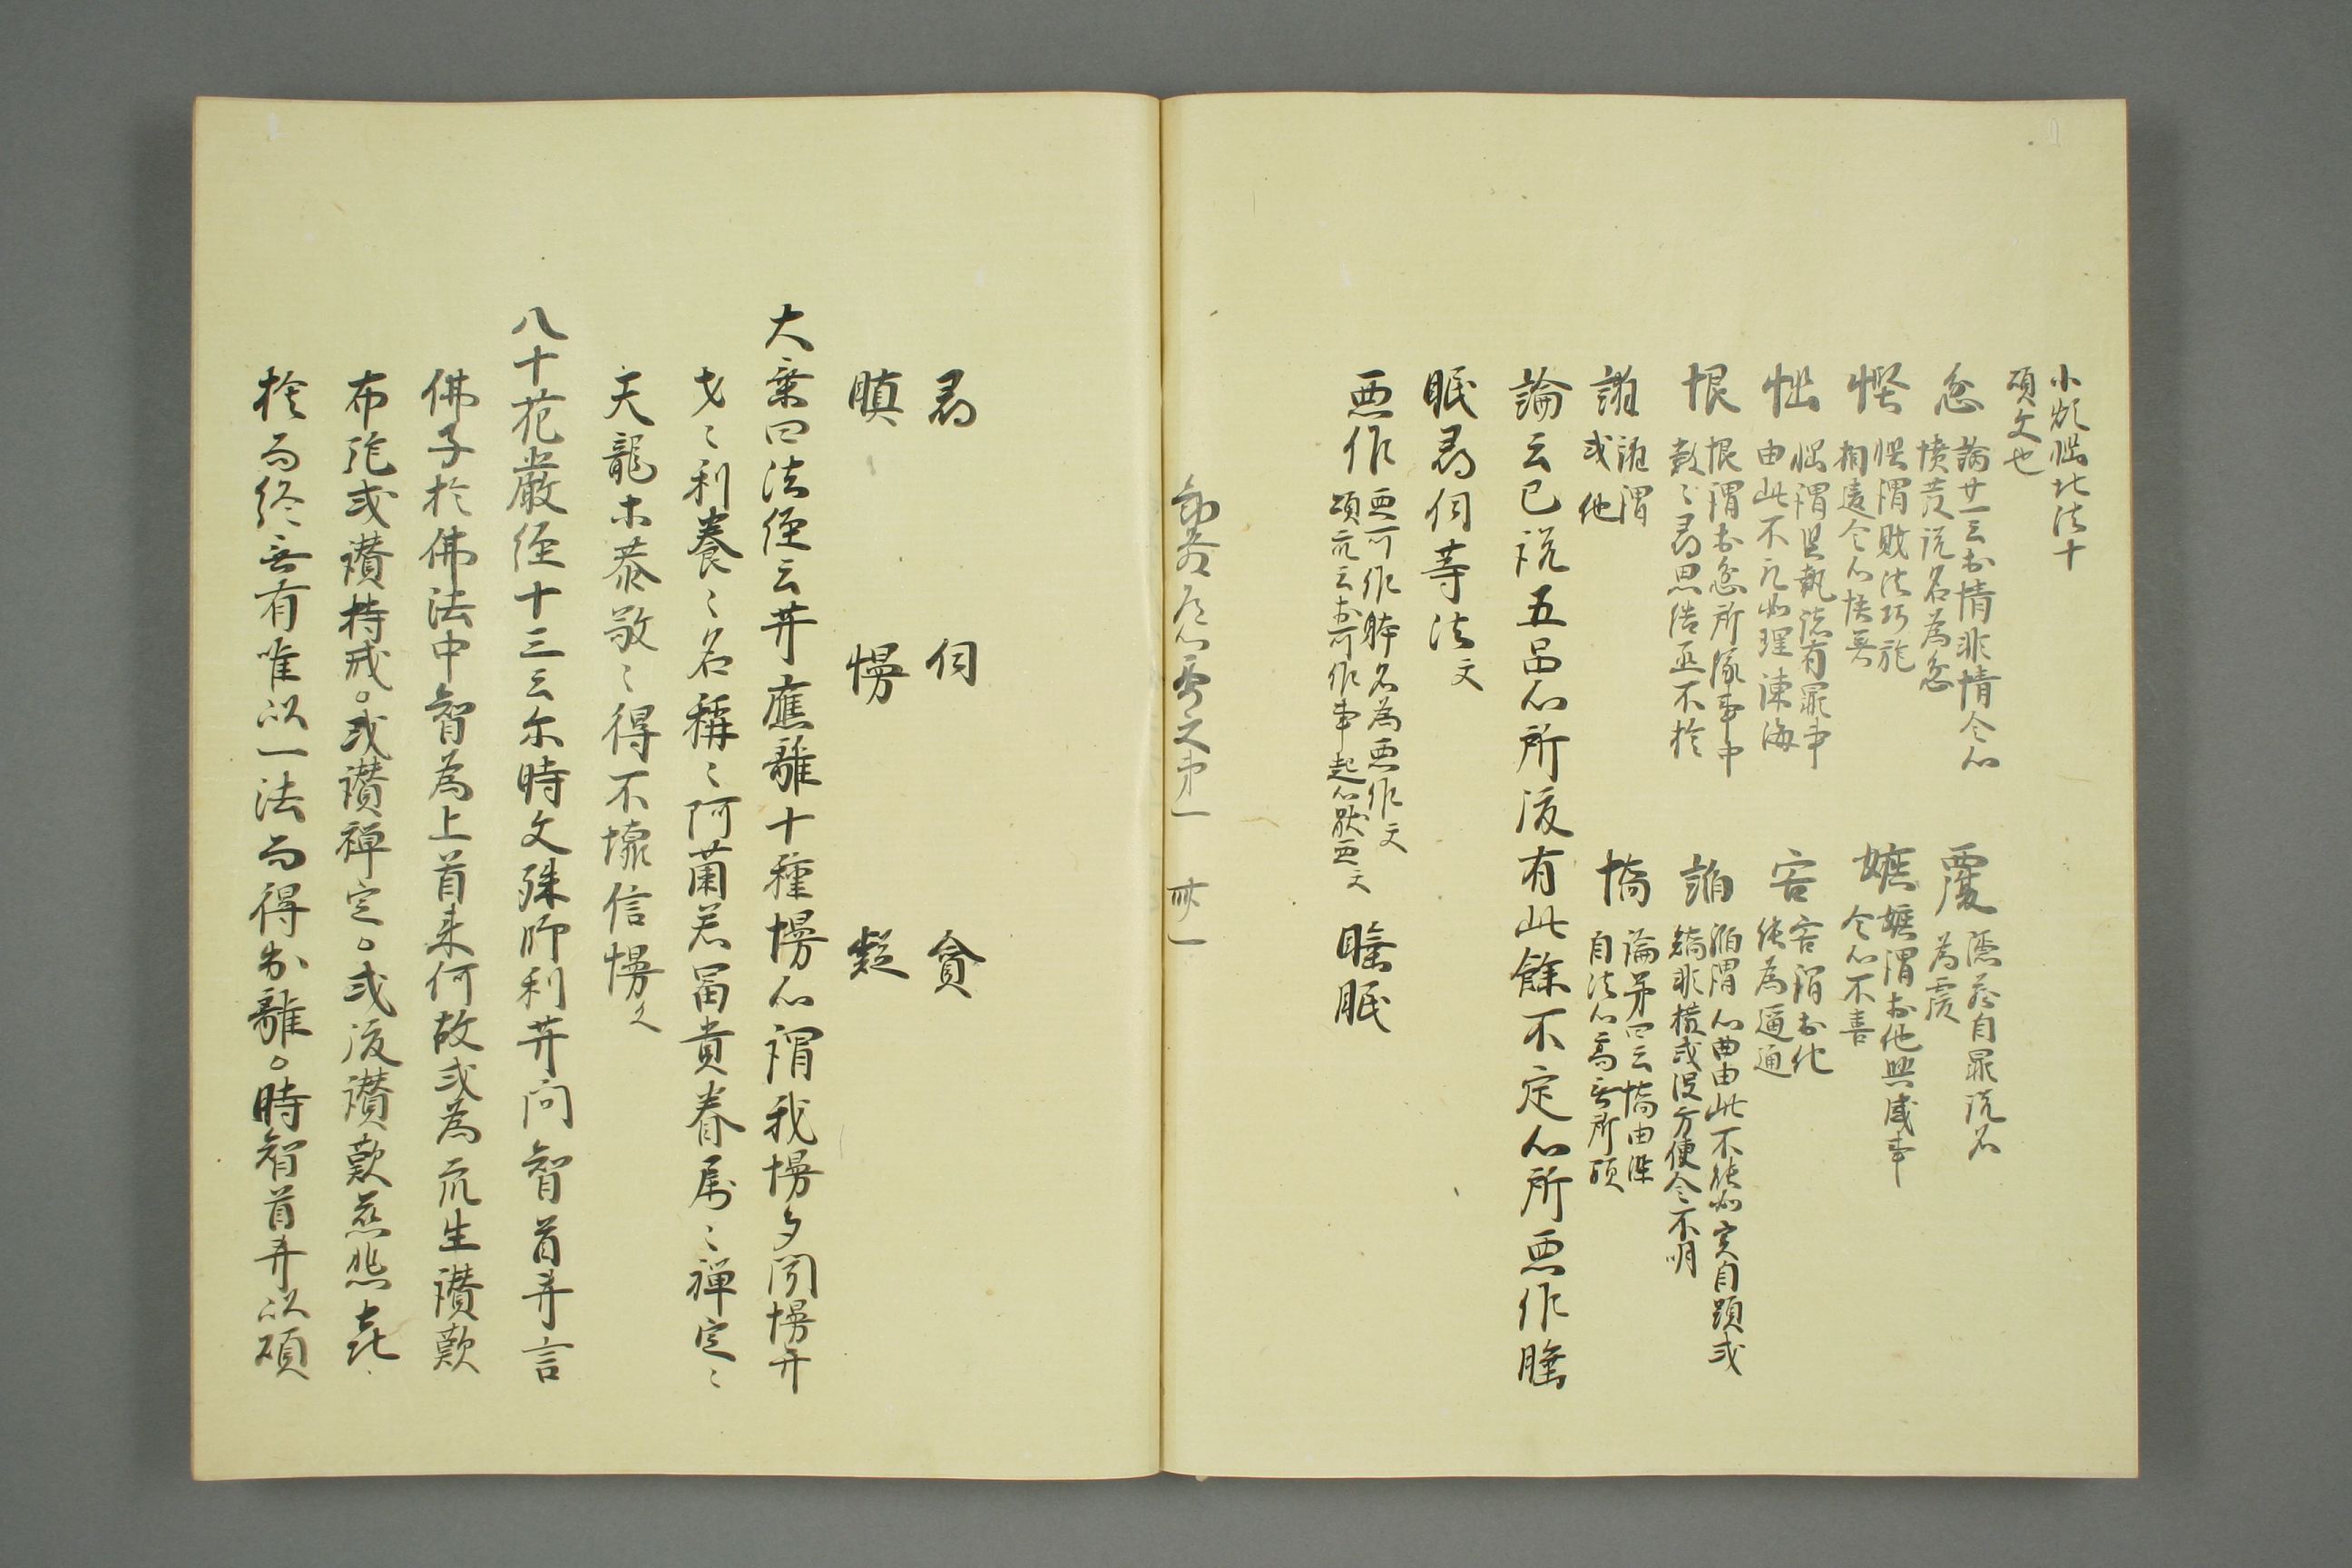 小煩惱地法十
頌文也
忿 論廿一云於情非情令心
憤發說名為忿
覆 隱藏自罪說名
為覆
慳 慳謂財法巧施
相違令心悋著
嫉 嫉謂於他興盛事
令心不喜
惱 惱謂堅執諸有罪事
由此不取如理諫悔
害 害謂於他
能為逼迫
恨 恨謂於忿所緣事中
數〻尋思結怨不捨
諂 諂謂心曲由此不能如実自顕或
矯非撥或設方便令不明
誑 誑謂
惑他
憍 論第四云憍由染
自法心高無所顧
論云已說五品心所復有此餘不定心所悪作睡
眠尋伺等法文
悪作 悪所作躰名為悪作文
頌疏云於所作事起心厭悪文
睡眠
尋 伺 貪
瞋 慢 疑
大乗四法経云菩應離十種慢心謂我慢多聞慢弁
才〻利養〻名稱〻阿蘭若冨貴眷属〻禅定〻
天龍等恭敬〻得不壞信慢文
八十花嚴経十三云尓時文殊師利菩問智首菩言
佛子於佛法中智為上首来何故或為衆生讃歎
布施或讃持戒。或讃禅定。或復讃歎慈悲喜
捨而終無有唯以一法而得出離。時智首菩以頌